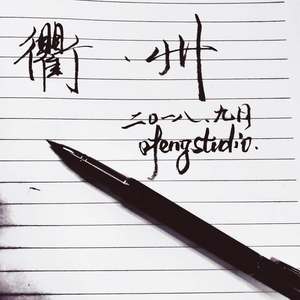 衢·州
二〇一八、九月
efengstudio.